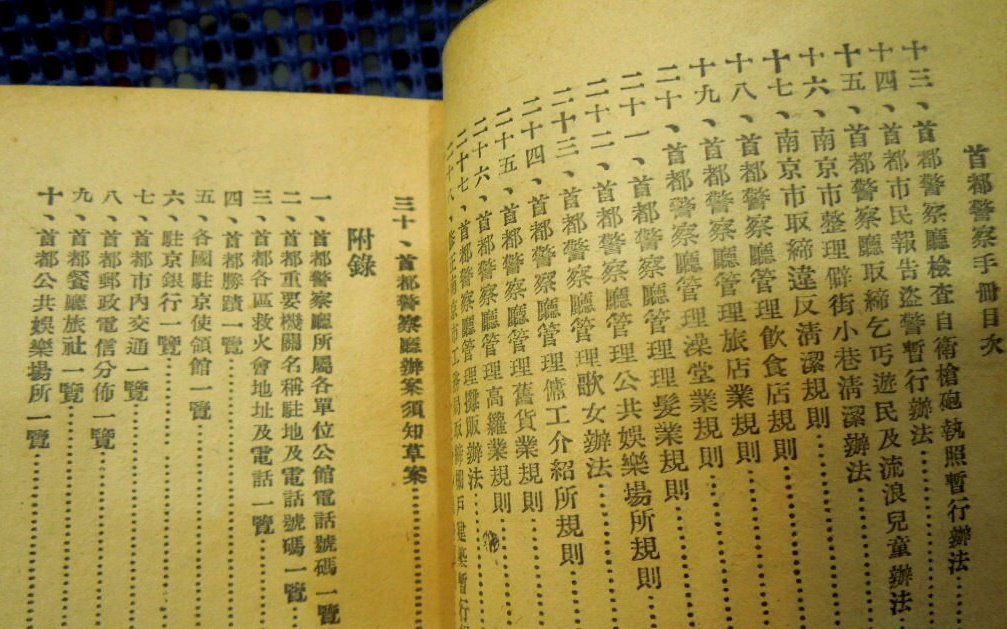 首都警察手冊目次
十三、首都警察廳檢查自衛槍砲執照暫行辦法
十四、首都市民報告盜警暫行辦法
十五、首都警察廳取締乞丐遊民及流浪兒童辦法
十六、南京市整理僻街小巷清潔辦法
十七、南京市取締違反清潔規則
十八、首都警察廳管理飲食店規則
十九、首都警察廳管理旅店業規則
二十、首都警察廳管理澡堂業規則
二十一、首都警察廳管理理髮業規則
二十二、首都警察廳管理公共娛樂場所規則
二十三、首都警察廳管理歌女辦法
二十四、首都警察廳管理傭工介紹所規則
二十五、首都警察廳管理舊貨業規則
二十六、首都警察廳管理高籮業規則
二十七、首都警察廳管理攤販辦法
二十八、修正南京市工務局取締棚戶建築暫行
三十、首都警察廳辦案須知草案
附錄
一、首都警察廳所屬各單位公館電話號碼一覽
二、首都重要機關名稱駐地及電話號碼一覽
三、首都各區救火會地址及電話一覽
四、首都勝蹟一覽
五、各國駐京使領館一覽
六、駐京銀行一覽
七、首都市內交通一覽
八、首都郵政電信分佈一覽
九、首都餐廳旅社一覽
十、首都公共娛樂場所一覽